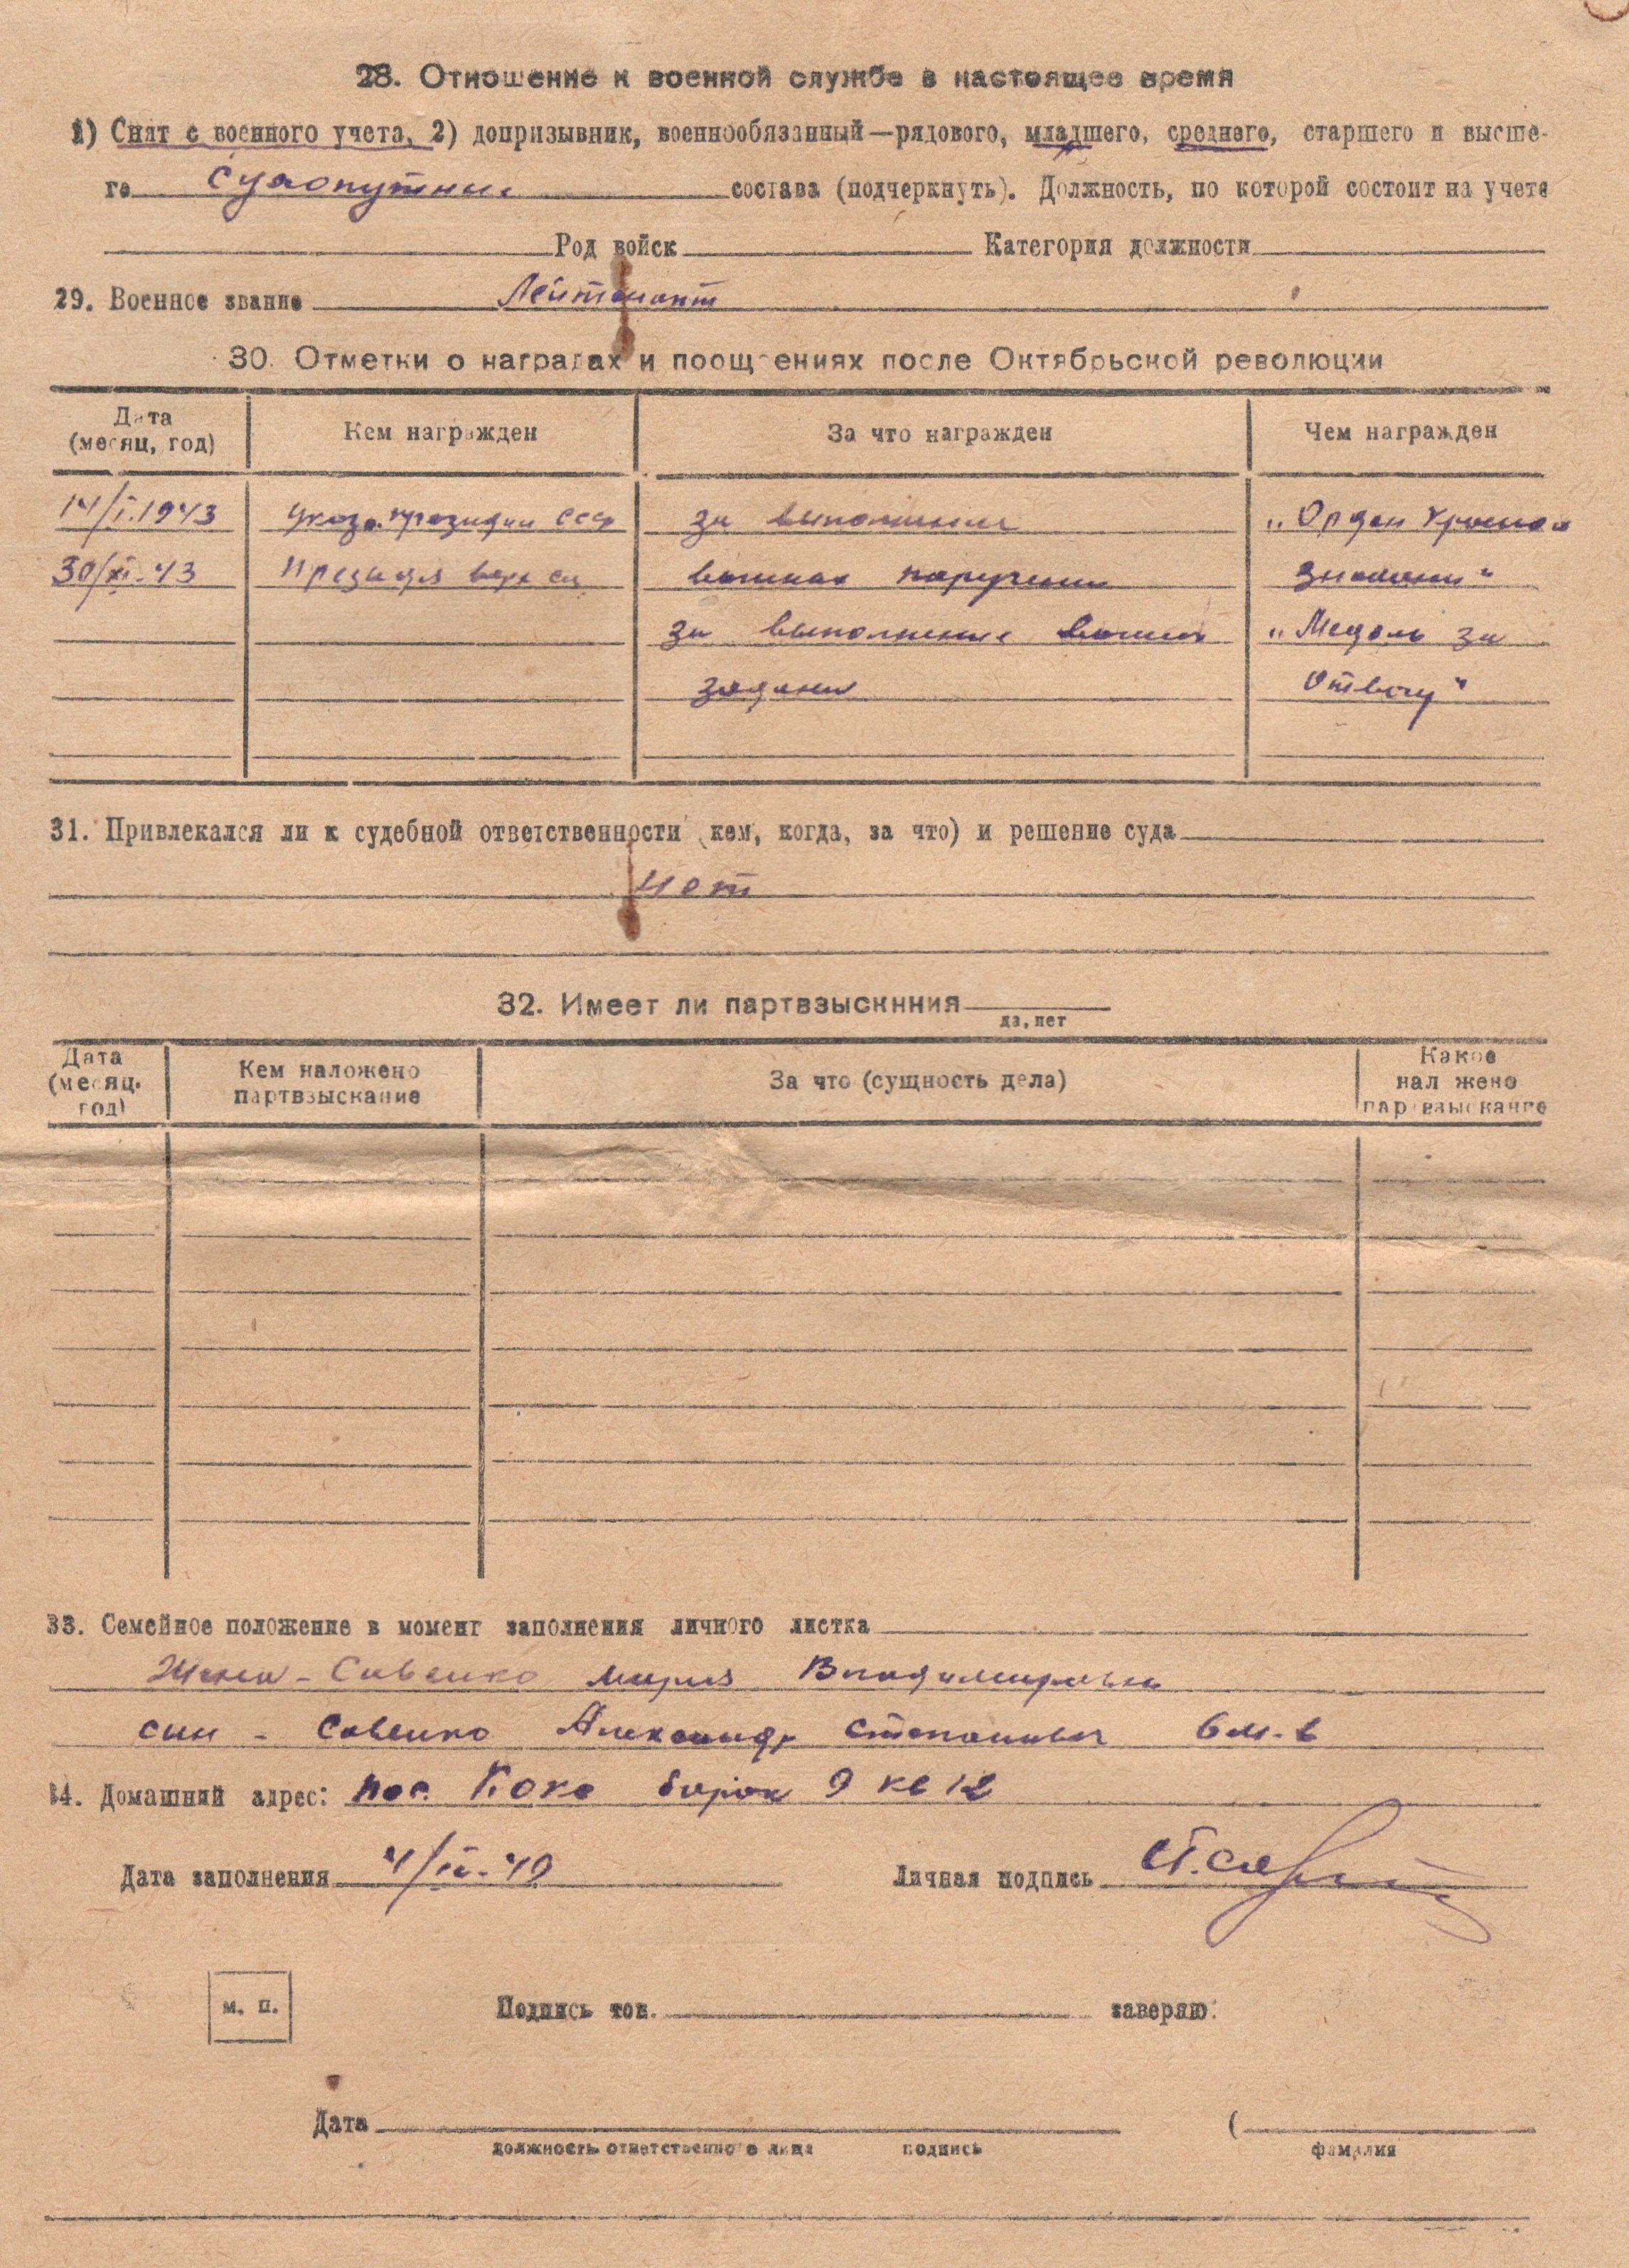 28. Отношение к военной службе в настоящее время
1) Снят с военного учета, 2) допризывник, военнообязанный—рядового, младшего, среднего, старшего и высше-
го Сухопутные состава (подчеркнуть). Должность, по которой состоит на учете
Род войск Категория должности
29. Военное звание Лейтенант
30. Отметки о наградах и поощрениях после Октябрьской революции
Дата (месяц, год) Кем награжден За что награжден Чем награжден
14/I.1943 президии СССР за выполнение „Орден Красной
30/XI-43 Верх за поручении знамени"
за выполнение „Медаль За
задания Отвагу"
31. Привлекался ли к судебной ответственности (кем, когда, за что) и решение суда
Нет
32. Имеет ли партвзыскнния
да, нет
Дата (месяц, год) Кем наложено партвзыскание За что (сущность дела) Какое наложено партвзыскание
33. Семейное положение в момент заполнения личного листка
Жена - Савенко Мария Владимировна
син - Савенко Александр Степанович 6 м-в
34. Домашний адрес: пос. Кокс барак 9 кв 12
Дата заполнения 4/IV-49 Личная подпись
м. п. Подпись тов. заверяю:
Дата (
должность ответственного лица подпись фамилия